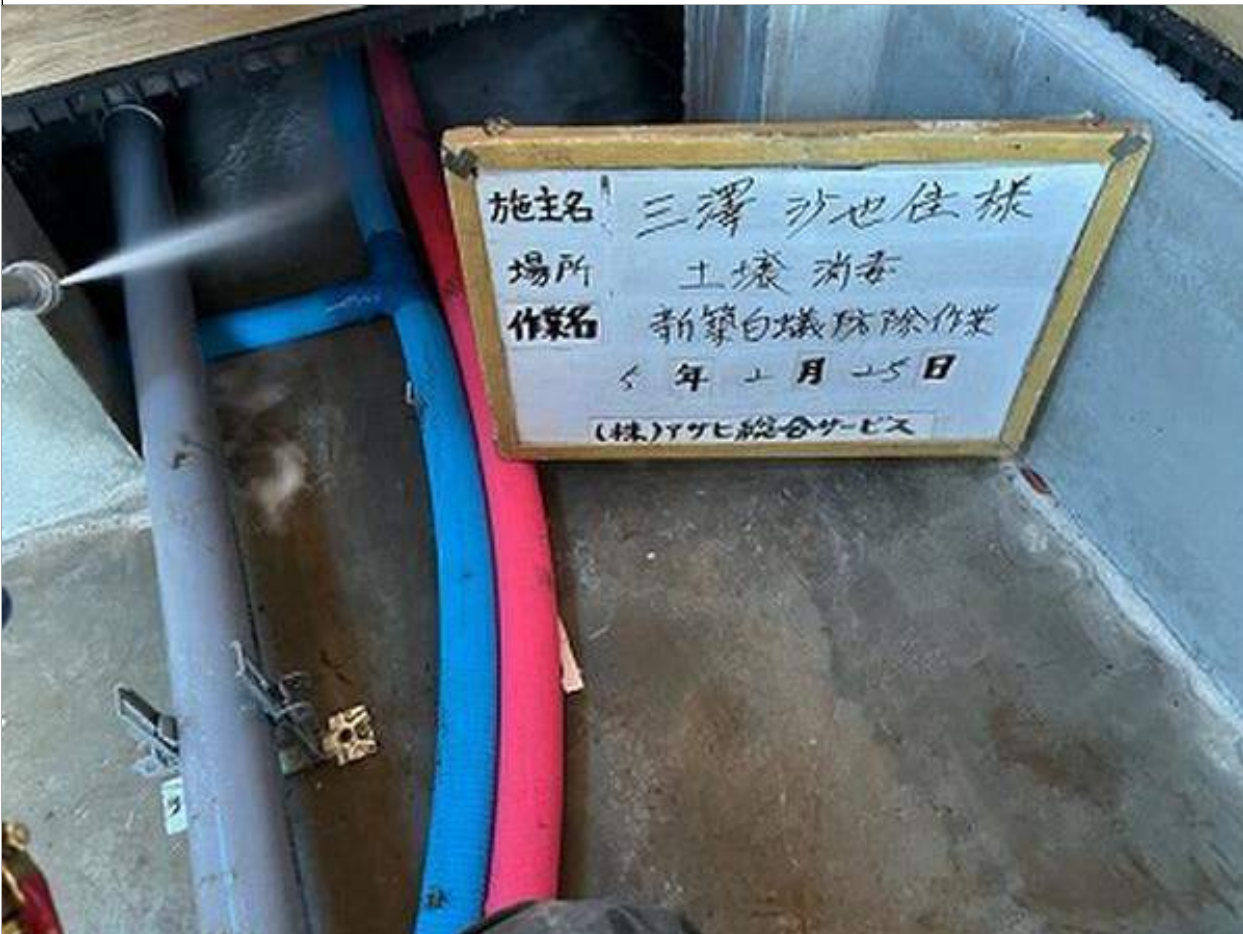 施主名 三澤 沙也佳 様
場所 土壌 消毒
作業名 新築白蟻防除作業
5年2月25日
(株)アサヒ総合サービス